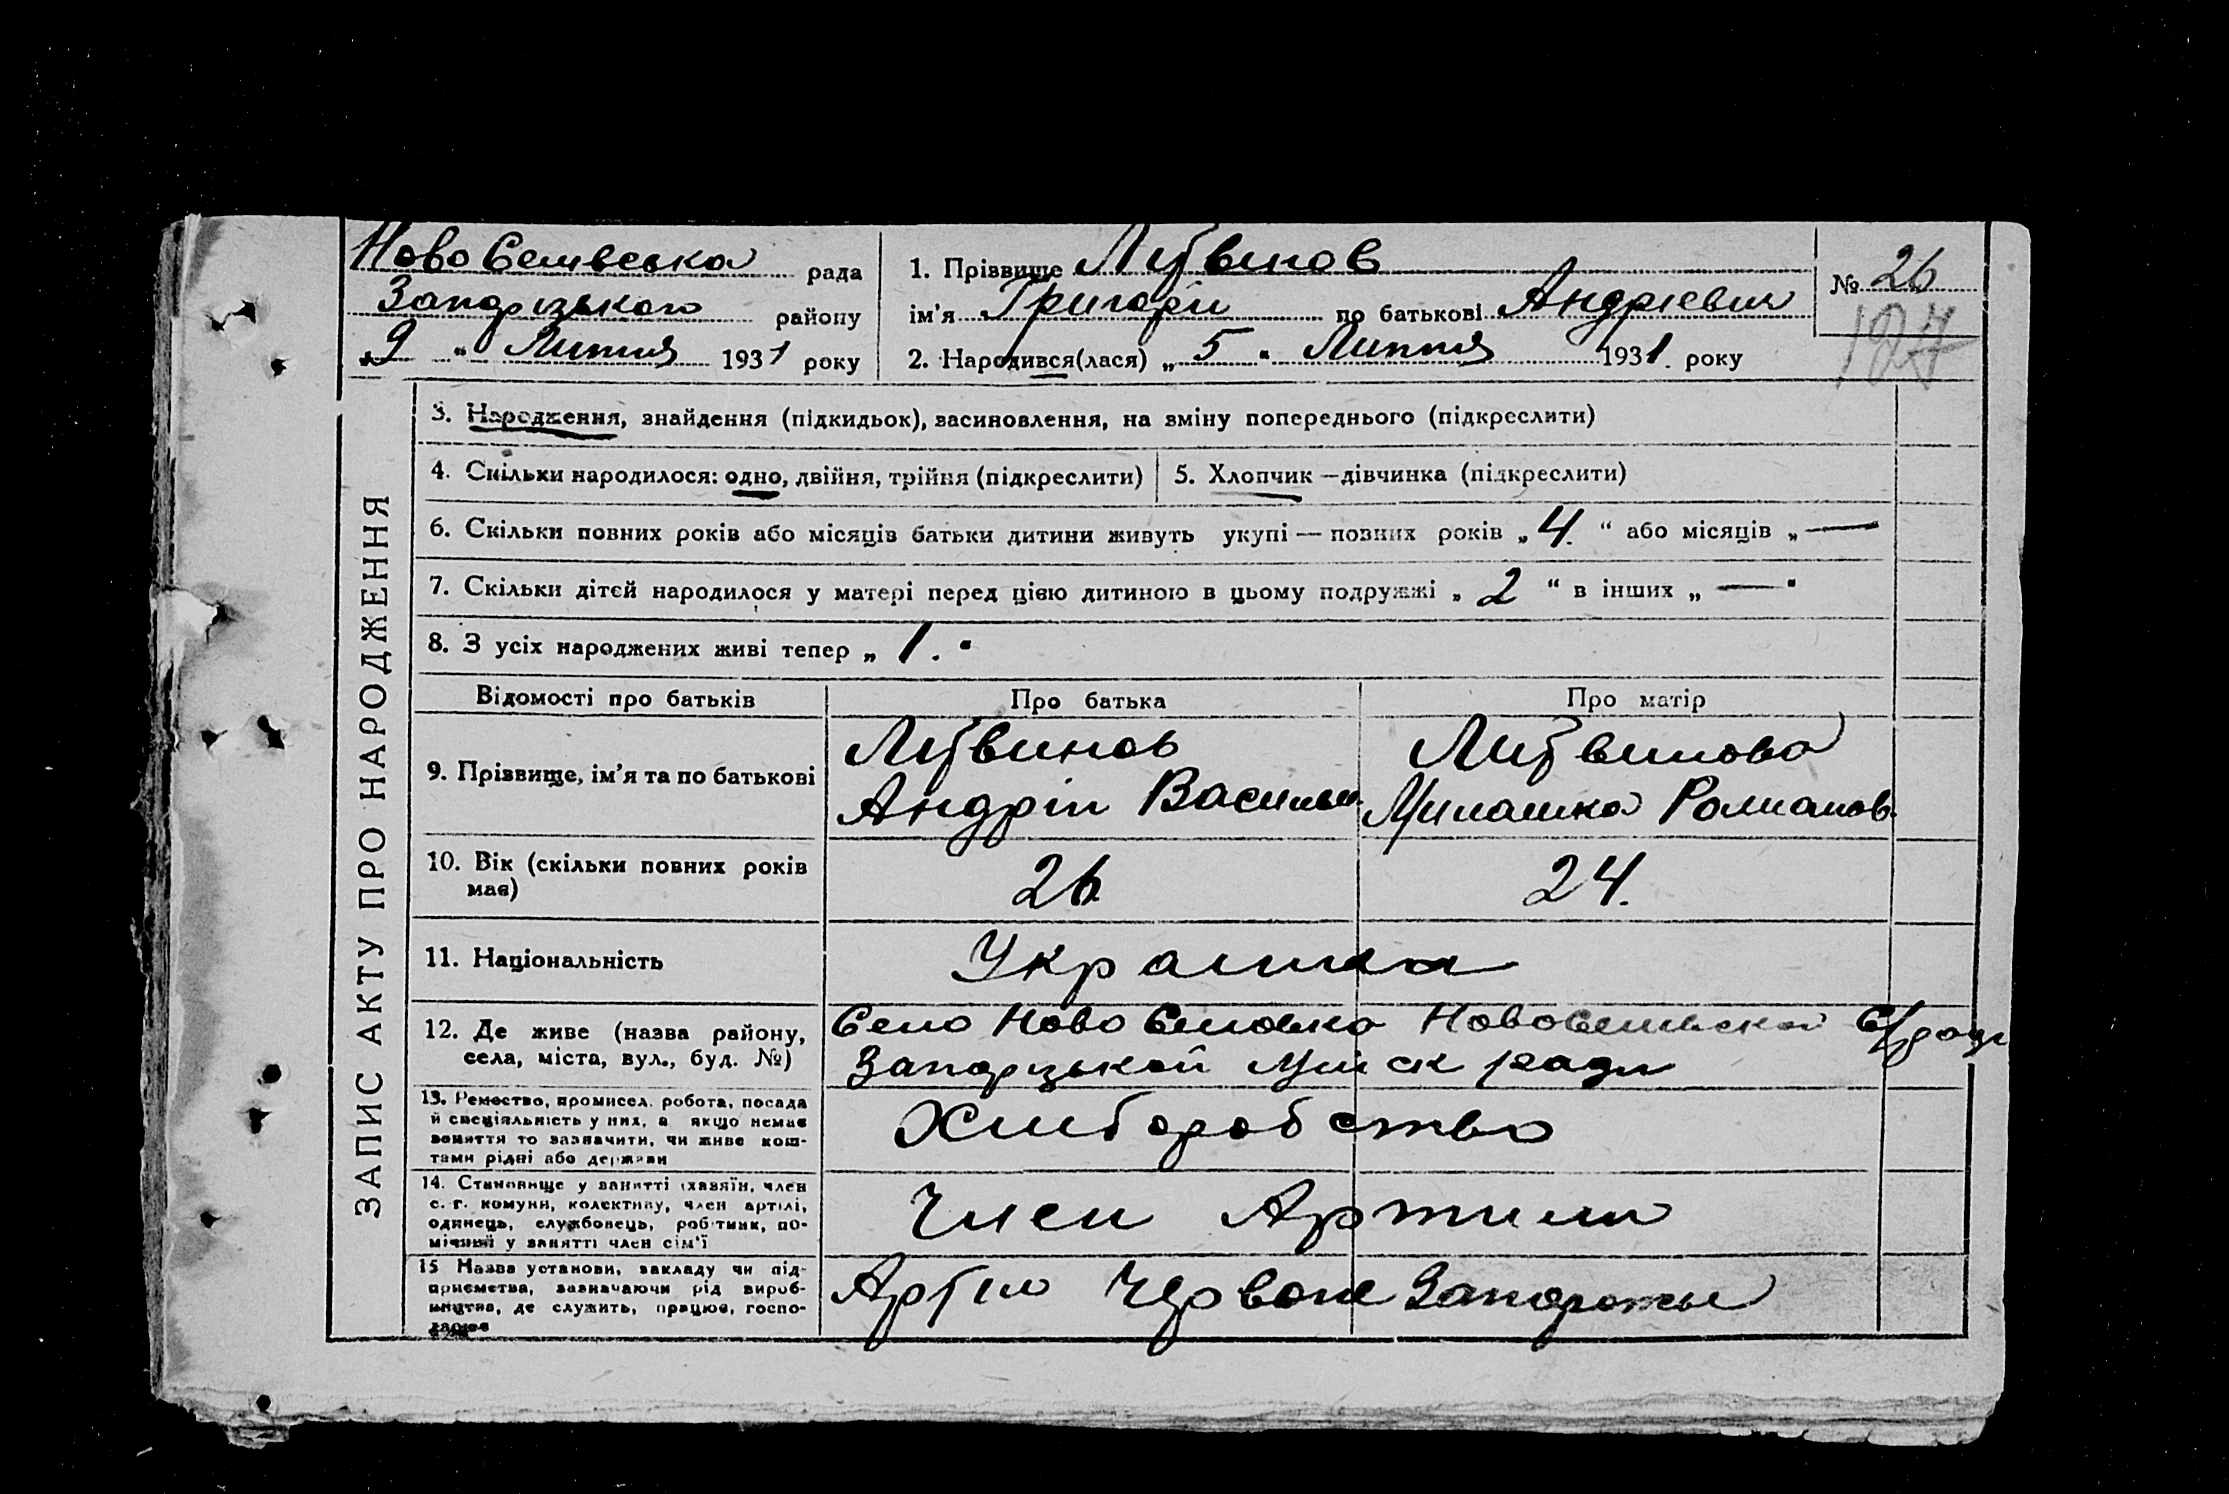 Ново Селивська рада
Запорізького району
„9 “ Липня 1931 року
1. Прізвище Литвинов
ім'я Григорій по батькові Андрієвич
2. Народився(лася) „ 5 “ Липня 1931. року
№ 26
127
ЗАПИС АКТУ ПРО НАРОДЖЕННЯ
3. Народження, знайдення (підкидьок), засиновлення, на зміну попереднього (підкреслити)
4. Скільки народилося: одно, двійня, трійня (підкреслити)
5. Хлопчик — дівчинка (підкреслити)
6. Скільки повних років або місяців батьки дитини живуть укупі — повних років „ 4. “ або місяців „ —
7. Скільки дітей народилося у матері перед цією дитиною в цьому подружжі „ 2 “ в інших „ — “
8. З усіх народжених живі тепер „ 1. “
Відомості про батьків Про батька Про матір
9. Прізвище, ім'я та по батькові
Литвинов
Андрій Васильв.
Литвинова
Романов.
10. Вік (скільки повних років
має)
26
24.
11. Національність
Українці
12. Де живе (назва району,
села, міста, вул., буд. №)
Село Ново Селовка Новоселивской С/ради
Запорізькой Міск ради
13. Ремество, промисел, робота, посада
й спеціяльність у них, а якщо немає
заняття то зазначити, чи живе кош-
тами рідні або держави
Хліборобство
14. Становище у занятті (хазяїн, член
с.-г. комуни, колективу, член артілі,
одинець, службовець, робітник, по-
мічний у занятті член сім'ї
Член Артили
15 Назва установи, закладу чи під-
приємства, зазначаючи рід вироб-
ництва, де служить, працює, госпо-
дарює
Артіль Червоне Запорожье